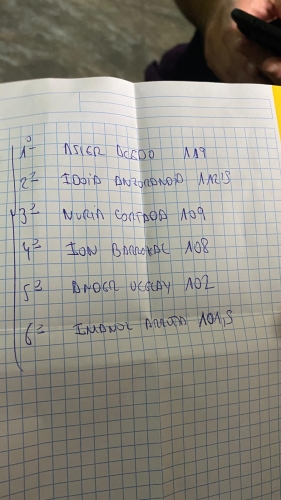 1º ASIER ACEDO 119
2º IDOIA ANZORANDIA 112,5
3º NURIA CORTADA 109
4º ION BARROKAL 108
5º ANDER UGGLAY 102
6º IMANOL ARRUTA 101,5